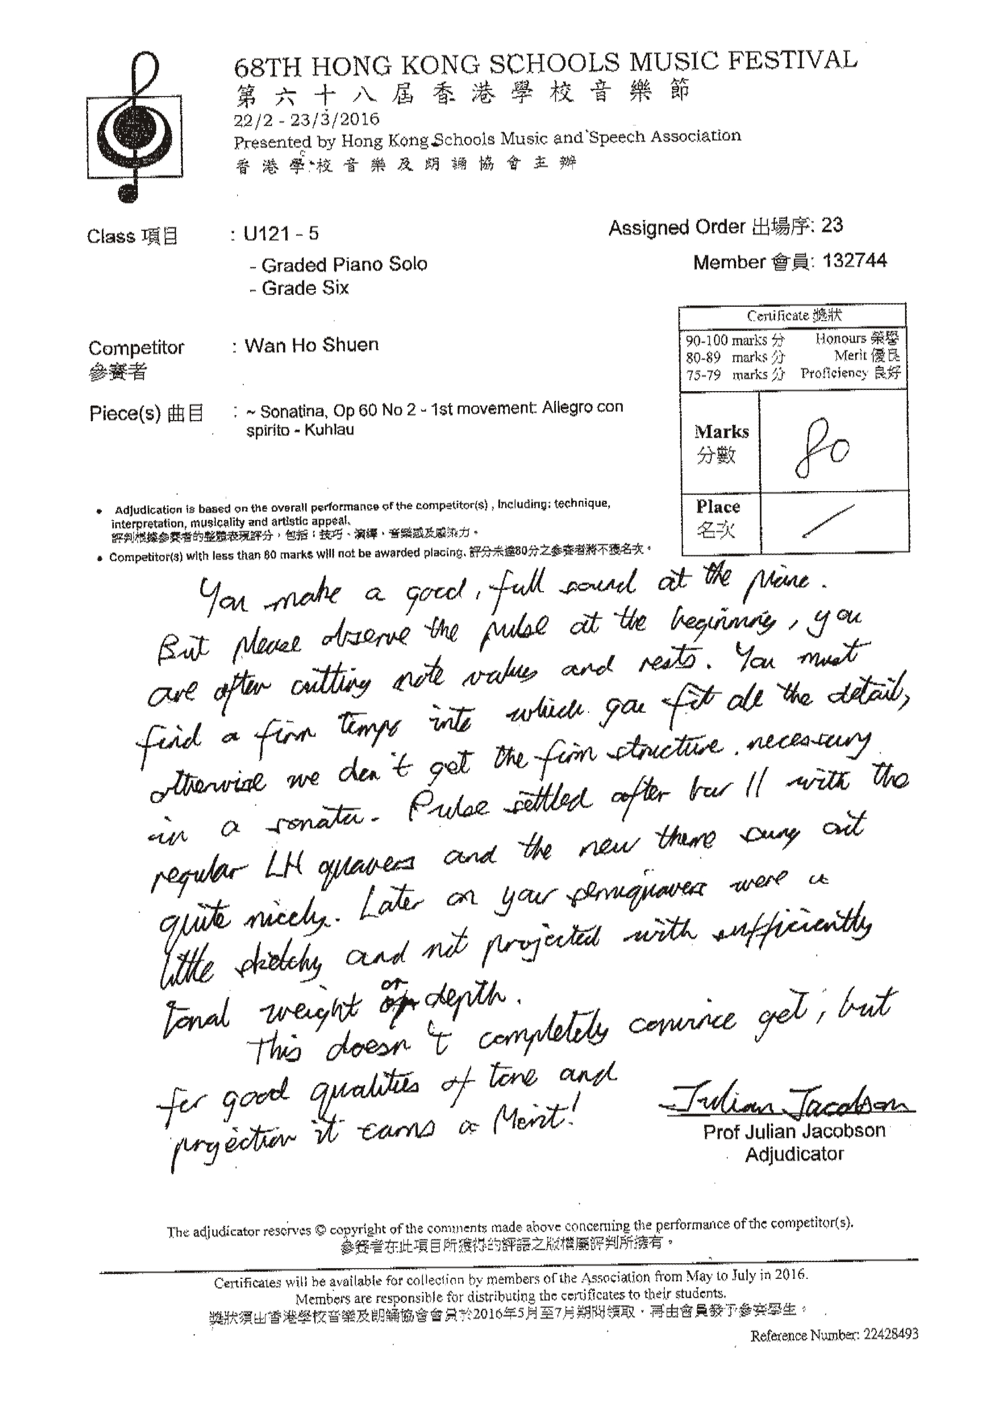 68TH HONG KONG SCHOOLS MUSIC FESTIVAL
第六十八屆香港學校音樂節
22/2 - 23/3/2016
Presented by Hong Kong Schools Music and Speech Association
香港學校音樂及朗誦協會主辦
Class 項目 : U121 - 5
Assigned Order 出場序: 23
- Graded Piano Solo
Member 會員: 132744
- Grade Six
Certificate 獎狀
90-100 marks 分 Honours 榮譽
80-89 marks 分 Merit 優良
75-79 marks 分 Proficiency 良好
Competitor : Wan Ho Shuen
參賽者
Piece(s) 曲目 : ~ Sonatina, Op 60 No 2 - 1st movement: Allegro con
spirito - Kuhlau
Marks 80
分數
Place /
名次
• Adjudication is based on the overall performance of the competitor(s) , including: technique,
interpretation, musicality and artistic appeal.
評判根據參賽者的整體表現評分，包括：技巧、演繹、音樂感及感染力。
• Competitor(s) with less than 80 marks will not be awarded placing. 評分未達80分之參賽者將不獲名次。
You make a good, full sound at the piano.
But please observe the pulse at the beginning, you
are often cutting note values and rests. You must
find a firm tempo into which you fit all the detail,
otherwise we don't get the firm structure necessary
in a sonata. Pulse settled after bar 11 with the
regular LH quavers and the new theme sung out
quite nicely. Later on your semiquavers were a
little sketchy and not projected with sufficiently
tonal weight or depth.
This doesn't completely convince yet, but
for good qualities of tone and
projection it earns a Merit!
Julian Jacobson
Prof Julian Jacobson
Adjudicator
The adjudicator reserves © copyright of the comments made above concerning the performance of the competitor(s).
參賽者在此項目所獲得的評語之版權屬評判所擁有。
Certificates will be available for collection by members of the Association from May to July in 2016.
Members are responsible for distributing the certificates to their students.
獎狀須由香港學校音樂及朗誦協會會員於2016年5月至7月期間領取，再由會員發予參賽學生。
Reference Number: 22428493